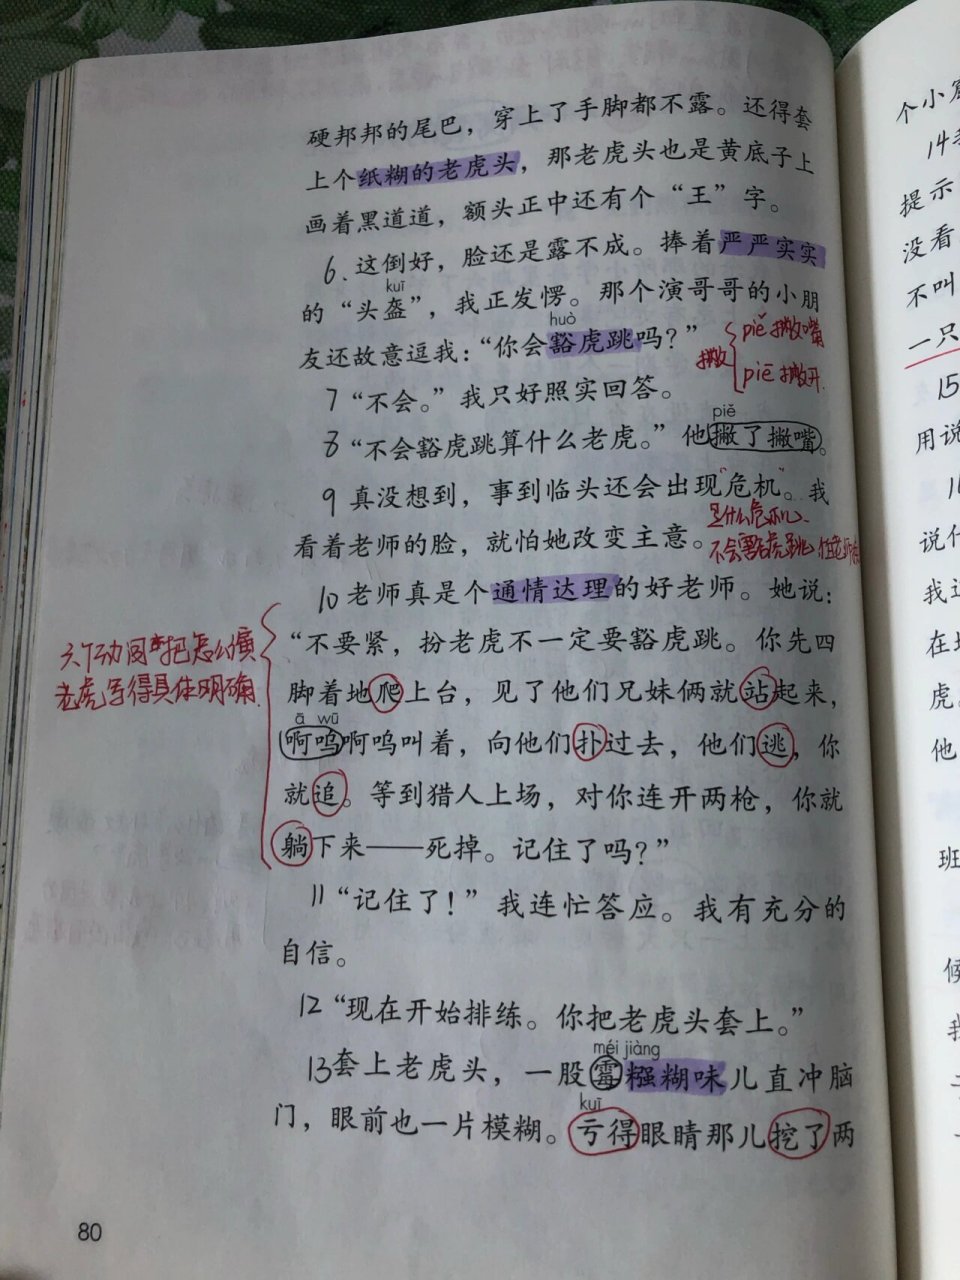 硬邦邦的尾巴，穿上了手脚都不露。还得套
上个纸糊的老虎头，那老虎头也是黄底子上
画着黑道道，额头正中还有个“王”字。
6、这倒好，脸还是露不成。捧着严严实实
kuī
的“头盔”，我正发愣。那个演哥哥的小朋
huò
友还故意逗我：“你会豁虎跳吗？”
撇
piě 撇嘴
piē 撇开
7 “不会。”我只好照实回答。
piě
8 “不会豁虎跳算什么老虎。”他撇了撇嘴。
9 真没想到，事到临头还会出现“危机”。我
是什么危机、
看着老师的脸，就怕她改变主意。
不会豁虎跳
10 老师真是个通情达理的好老师。她说：
“不要紧，扮老虎不一定要豁虎跳。你先四
六个动词 把怎么演
老虎写得具体明确
脚着地爬上台，见了他们兄妹俩就站起来，
ā wū
啊呜啊呜叫着，向他们扑过去，他们逃，你
就追。等到猎人上场，对你连开两枪，你就
躺下来——死掉。记住了吗？”
11 “记住了！”我连忙答应。我有充分的
自信。
12 “现在开始排练。你把老虎头套上。”
méi jiàng
13 套上老虎头，一股霉糨糊味儿直冲脑
kuī
门，眼前也一片模糊。亏得眼睛那儿挖了两
80
个小
14
提示
没看
不叫
一只
15
用说
说什
我
在
虎
他
班
候
我